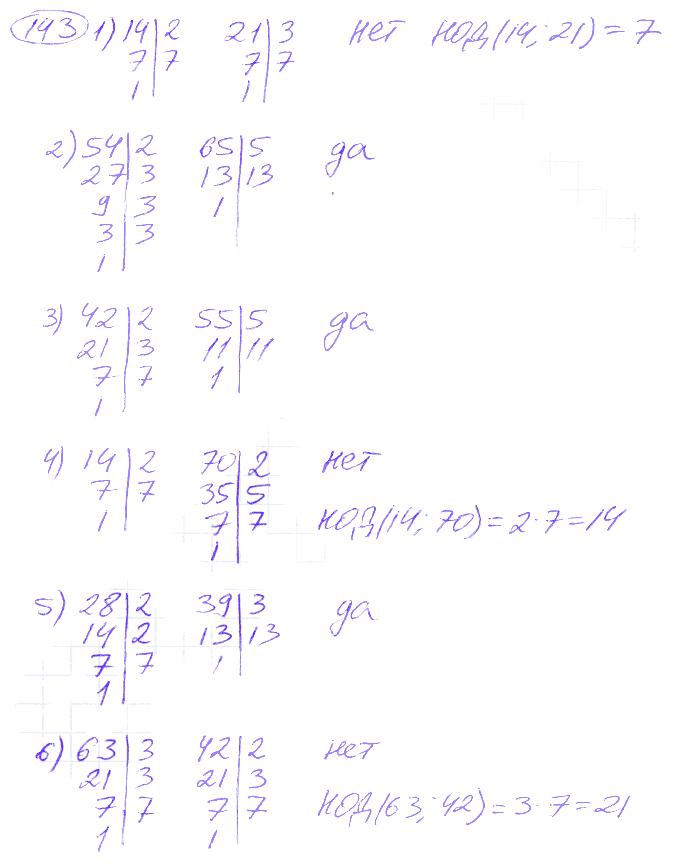 143 1) 14|2 21|3 нет НОД(14; 21) = 7
7|7 7|7
1| 1|
2) 54|2 65|5 да
27|3 13|13
9|3 1|
3|3
1|
3) 42|2 55|5 да
21|3 11|11
7|7 1|
1|
4) 14|2 70|2 нет
7|7 35|5
1| 7|7 НОД(14; 70) = 2·7 = 14
1|
5) 28|2 39|3 да
14|2 13|13
7|7 1|
1|
6) 63|3 42|2 нет
21|3 21|3
7|7 7|7 НОД(63; 42) = 3·7 = 21
1| 1|